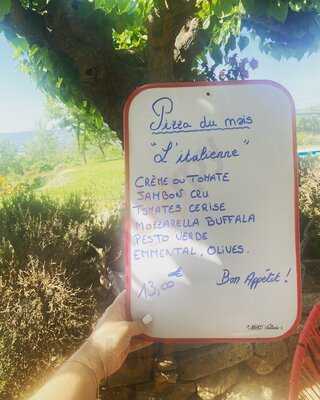 Pizza du mois
"L'italienne"
CRÈME OU TOMATE
JAMBON CRU
TOMATES CERISE
MOZZARELLA BUFFALA
PESTO VERDE
EMMENTAL, OLIVES.
13,00 €
Bon Appétit !